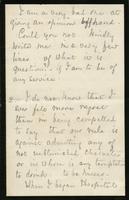 I am a very bad one at
giving an opinion offhand.
Could you not kindly
write me a very few
lines of what is in
question. if I am to be of
any service.
I do not know that I
was felt more regret
than in being compelled
to say that our rule is
against admitting any of
not illegitimate children
or in where is any temptation
to drink to be nurses.
When I began Hospital